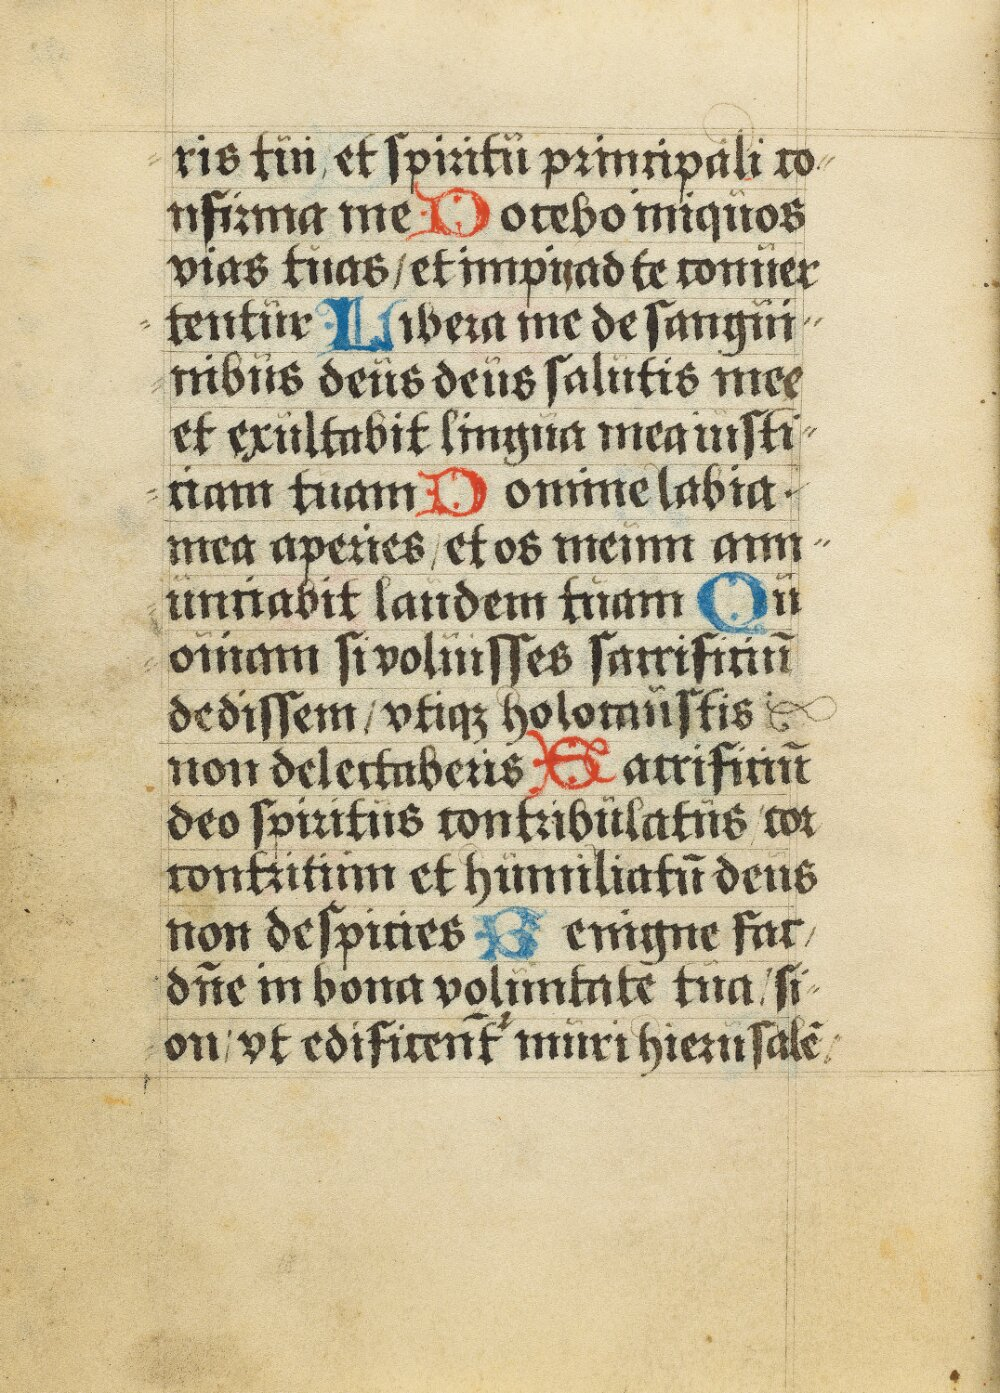 ris tui, et spiritu principali co⸗
nfirma me Docebo iniquos
vias tuas/ et impij ad te conuer
tentur Libera me de sangui⸗
nibus deus deus salutis mee
et exultabit lingua mea iusti⸗
ciam tuam Domine labia
mea aperies/ et os meum ann⸗
unciabit laudem tuam Qu
oniam si voluisses sacrificiū
dedissem/ vtiqꝫ holocaustis
non delectaberis Sacrificiū
deo spiritus contribulatus/ cor
contritum et humiliatū deus
non despicies Benigne fac/
dn̄e in bona voluntate tua/ si⸗
on/ vt edificent̄ muri hierusalē/